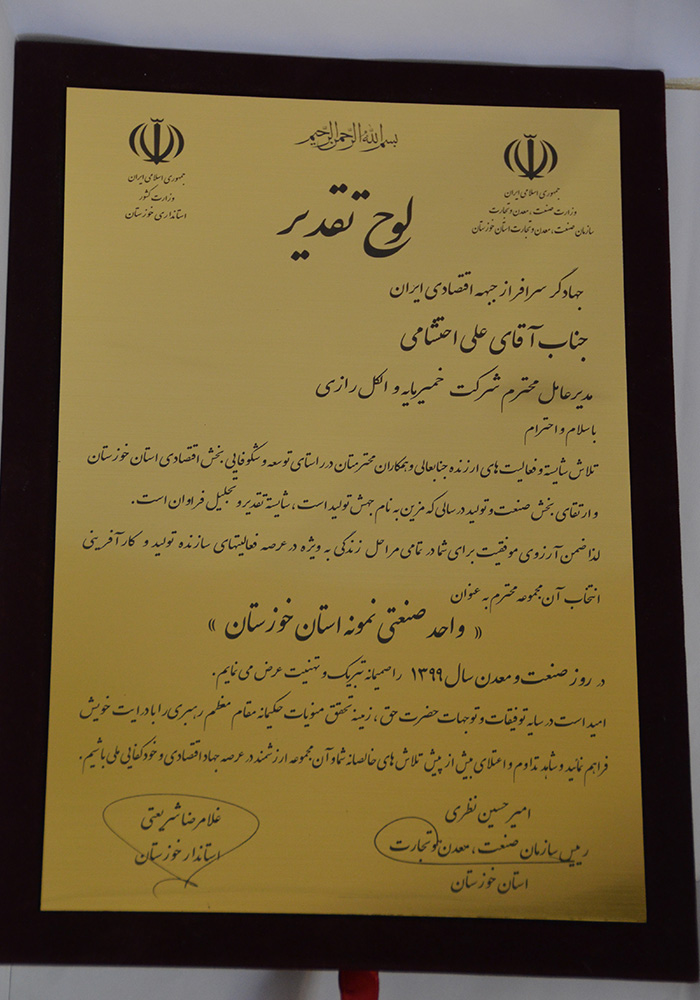 بسم الله الرحمن الرحیم
جمهوری اسلامی ایران
وزارت صنعت، معدن و تجارت
سازمان صنعت، معدن و تجارت استان خوزستان
جمهوری اسلامی ایران
وزارت کشور
استانداری خوزستان
لوح تقدیر
جهادگر سرافراز جبهه اقتصادی ایران
جناب آقای علی احتشامی
مدیرعامل محترم شرکت خمیرمایه و الکل رازی
با سلام و احترام
تلاش شایسته و فعالیت های ارزنده جنابعالی و همکاران محترمتان در راستای توسعه و شکوفایی بخش اقتصادی استان خوزستان
و ارتقای بخش صنعت و تولید در سالی که مزین به نام جهش تولید است، شایسته تقدیر و تجلیل فراوان است.
لذا ضمن آرزوی موفقیت برای شما در تمامی مراحل زندگی به ویژه در عرصه فعالیتهای سازنده تولید و کارآفرینی
انتخاب آن مجموعه محترم به عنوان
« واحد صنعتی نمونه استان خوزستان »
در روز صنعت و معدن سال ۱۳۹۹ را صمیمانه تبریک و تهنیت عرض می نمایم.
امید است در سایه توفیقات و توجهات حضرت حق، زمینه تحقق منویات حکیمانه مقام معظم رهبری را با درایت خویش
فراهم نمائید و شاهد تداوم و اعتلای بیش از پیش تلاش های خالصانه شما و آن مجموعه ارزشمند در عرصه جهاد اقتصادی و خودکفایی ملی باشیم.
امیرحسین نظری
رییس سازمان صنعت، معدن و تجارت
استان خوزستان
غلامرضا شریعتی
استاندار خوزستان